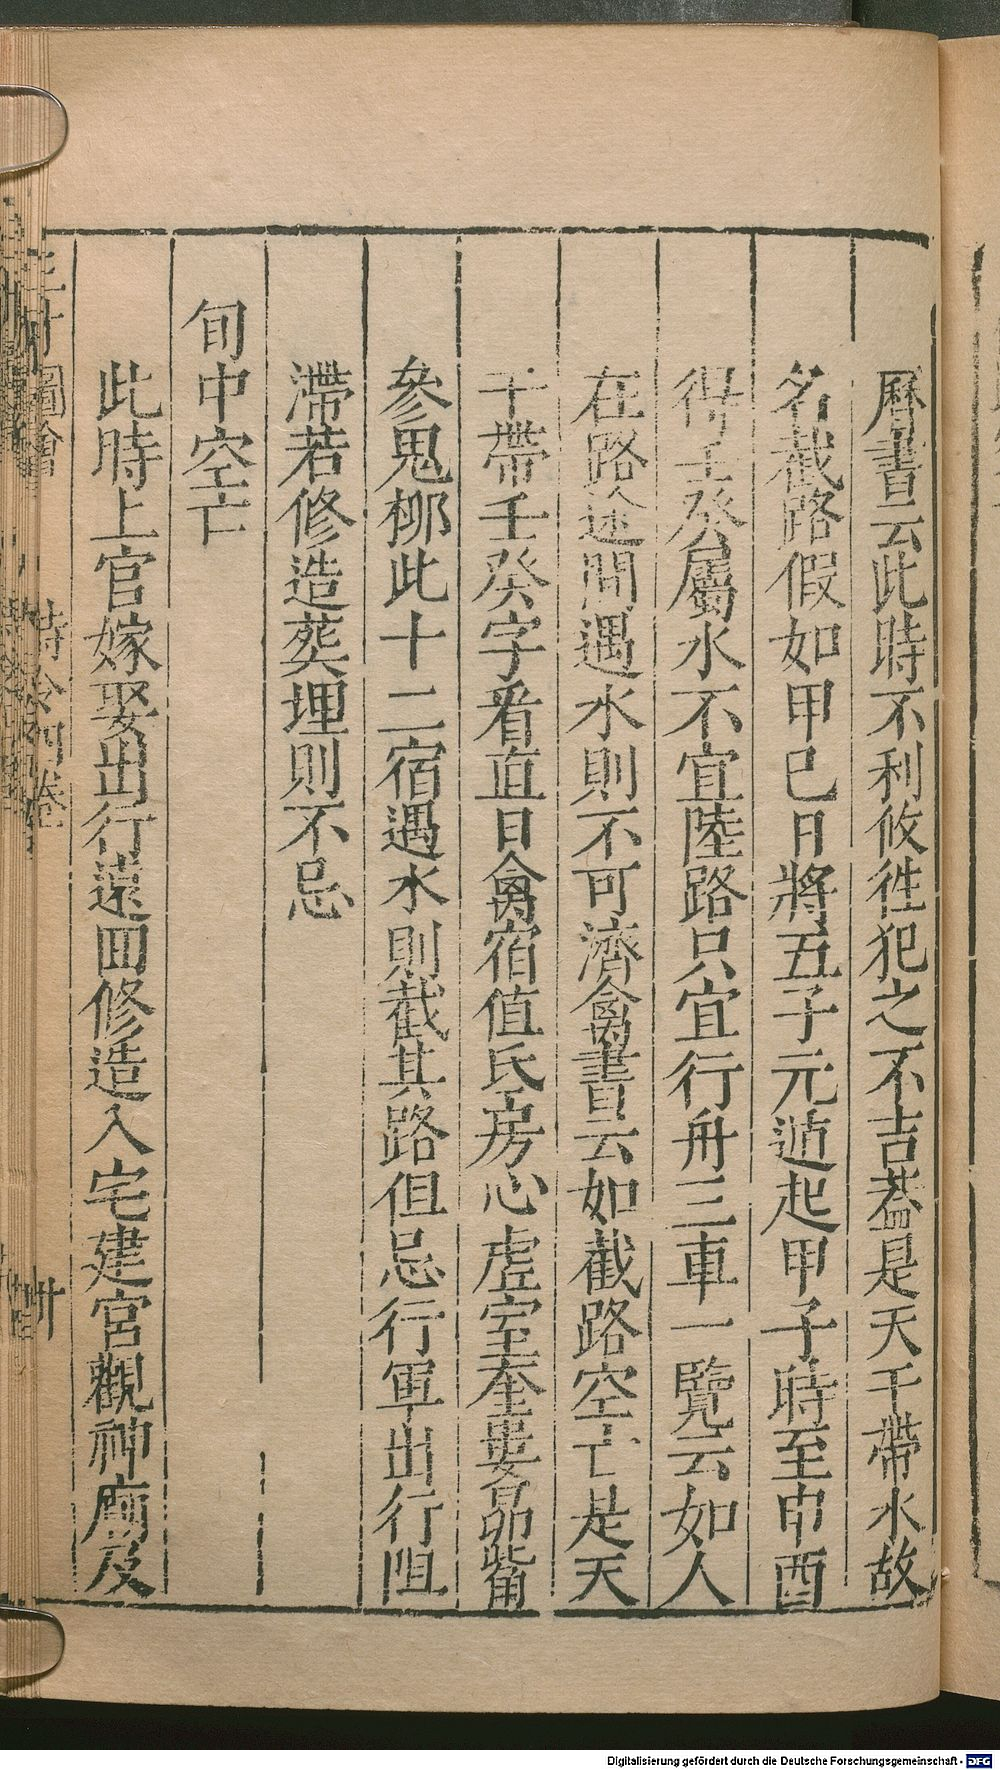 曆書云此時不利攸徃犯之不吉葢是天干帶水故
名截路假如甲己日將五子元遁起甲子時至申酉
得壬癸屬水不宜陸路只宜行舟三車一覽云如人
在路途間遇水則不可濟禽書云如截路空亡是天
干帶壬癸字看直日禽宿值氐房心虛室奎婁昴觜
參鬼柳此十二宿遇水則截其路但忌行軍出行阻
滯若修造葬埋則不忌
旬中空亡
此時上官嫁娶出行遠回修造入宅建宮觀神廟及
圖會
時令
卷
卅
Digitalisierung gefördert durch die Deutsche Forschungsgemeinschaft - DFG